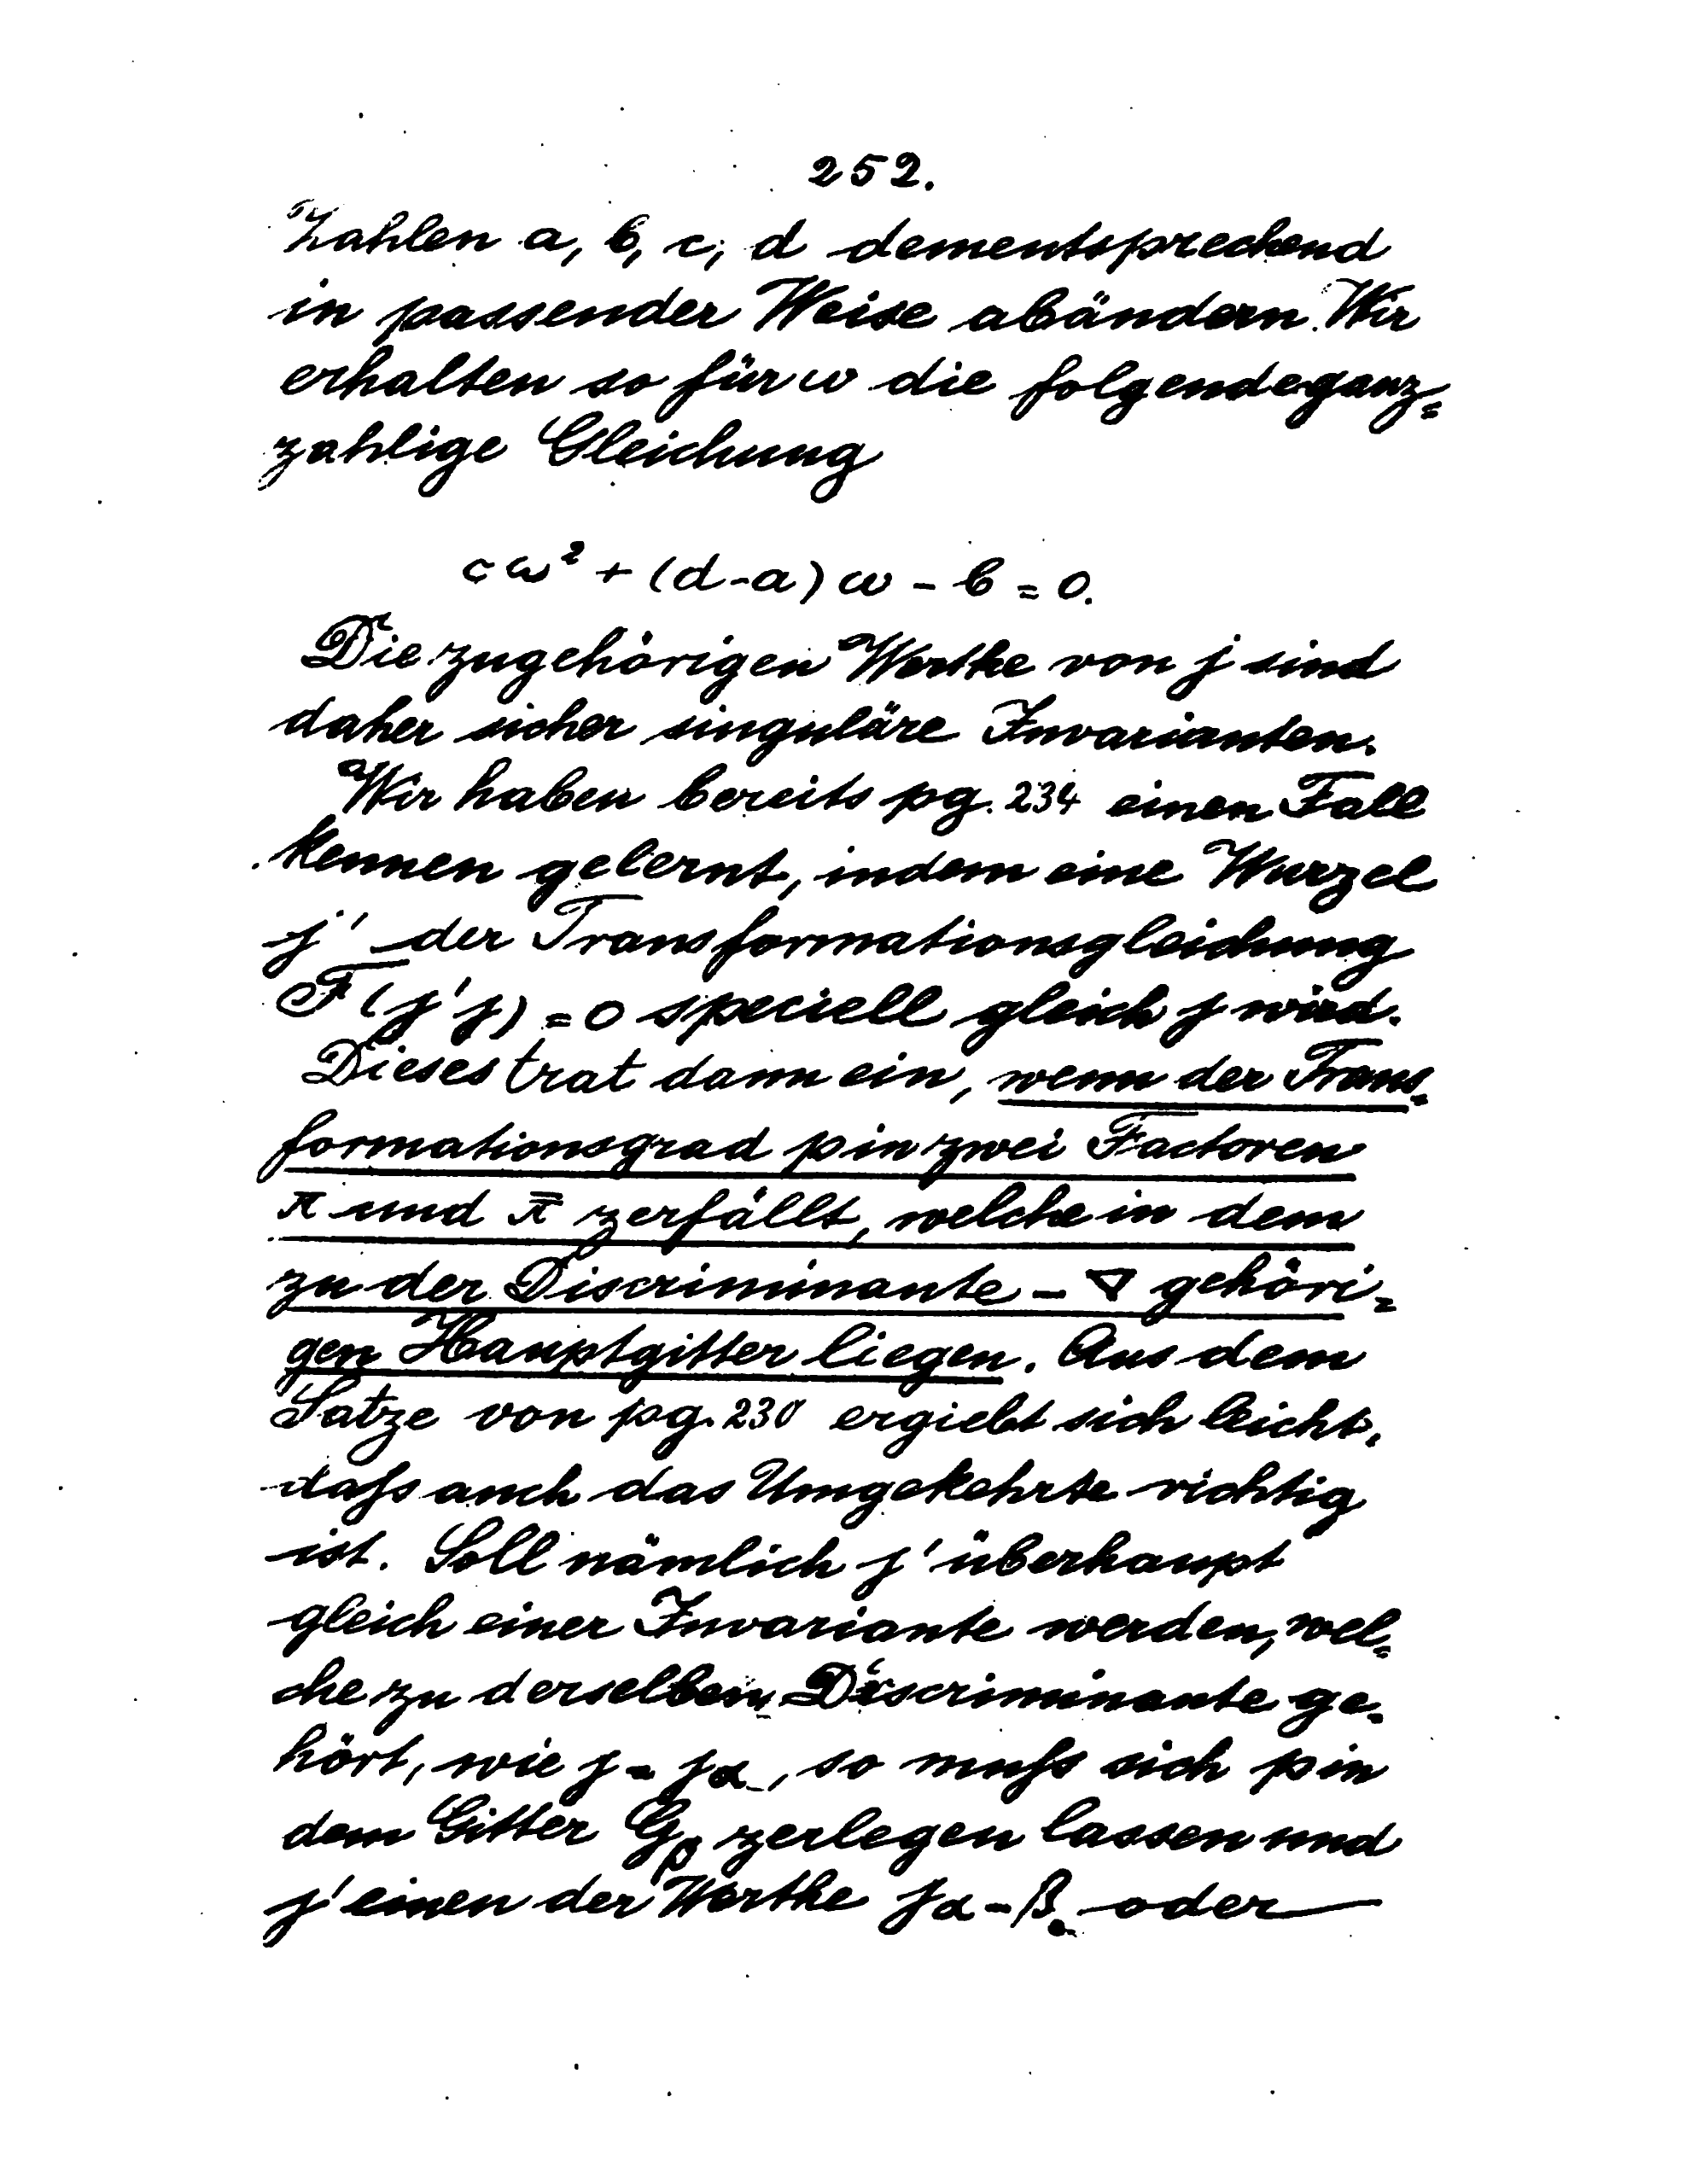 252.
Zahlen a, b, c, d dementsprechend
in passender Weise abändern. Wir
erhalten so für ω die folgende ganz=
zahlige Gleichung
cω² + (d-a) ω - b = 0.
Die zugehörigen Werthe von j sind
daher sicher singuläre Invarianten.
Wir haben bereits pg. 234 einen Fall
kennen gelernt, indem eine Wurzel
j' der Transformationsgleichung
F(j'j) = 0 speciell gleich j wird.
Dieses trat dann ein, wenn der Trans=
formationsgrad p in zwei Factoren
π und π̄ zerfällt, welche in dem
zu der Discriminante - ∇ gehöri=
gen Hauptgitter liegen. Aus dem
Satze von pg. 230 ergiebt sich leicht,
dafs auch das Umgekehrte richtig
ist. Soll nämlich j' überhaupt
gleich einer Invariante werden, wel=
che zu derselben Discriminante ge=
hört, wie j = jα, so mufs sich p in
dem Gitter Gβ zerlegen lassen und
j' einen der Werthe jα-β oder